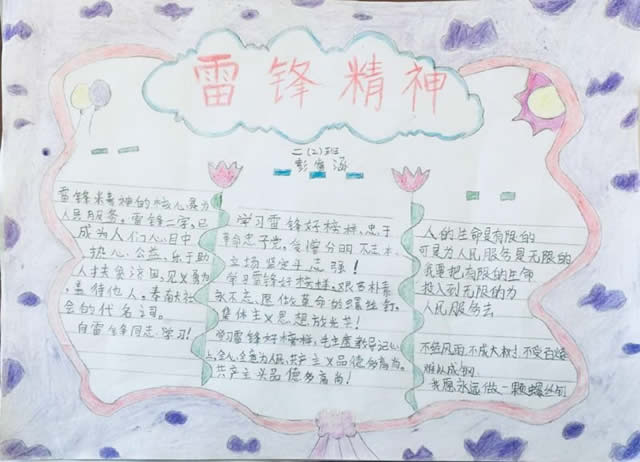 雷锋精神
二(2)班
雷锋精神的核心是为
人民服务。雷锋二字,已
成为人们心目中
热心公益,乐于助
人扶贫济困,见义勇为,
善待他人,奉南大社
会的代名词。
向雷锋同志学习!
学习雷锋好榜样,忠于
革命忠于党。爱憎分明不忘本
立场坚定斗志强!
学习雷锋好榜样,艰苦朴素
永不忘,愿做革命的螺丝钉。
集体主义思想放光芒!
学习雷锋好榜样,毛主度教导记心
上,全心全意为人民,共产主义品德多高尚。
共产主义品德多高尚!
人的生命是有限的
可是为人民服务是无限的
我要把有限的生命
投入到无限的为
人民服务去
不经风雨,不成大树,不受百炼
难以成钢。
我愿永远做一颗螺丝钉